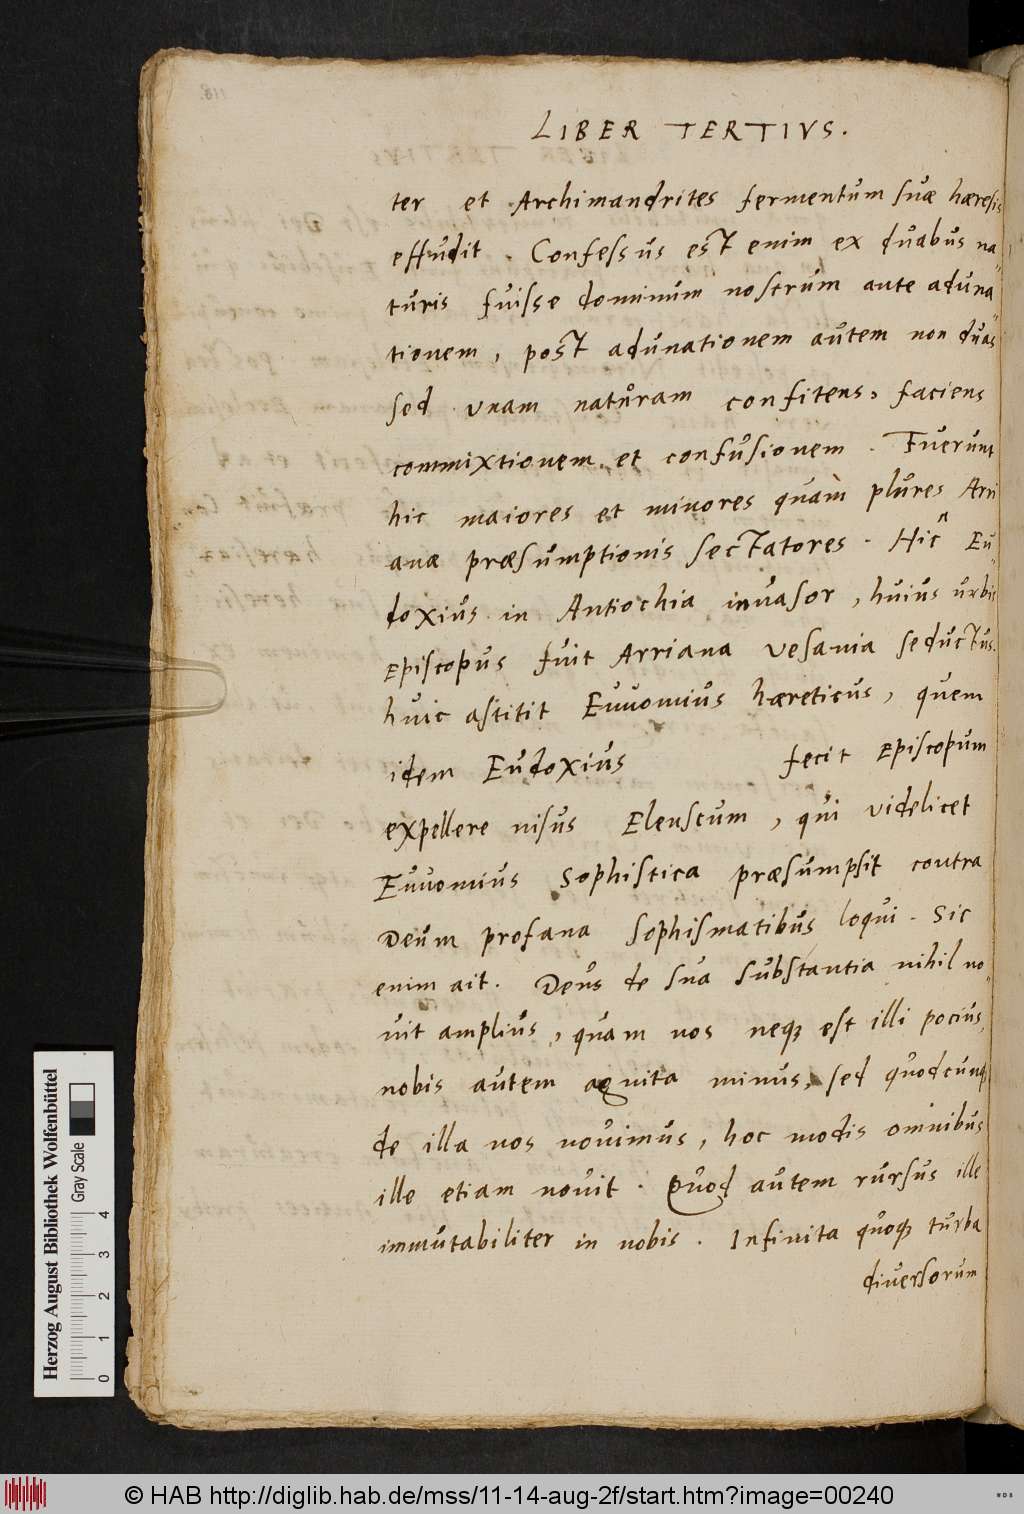 LIBER TERTIVS.
ter et Archimandrites fermentum suæ hæresis
effudit. Confessus est enim ex duabus na"
turis fuisse dominum nostrum ante aduna"
tionem, post adunationem autem non duas
sed unam naturam confitens, faciens
commixtionem et confusionem. Fuerunt
hic maiores et minores quam plures Arri
anæ præsumptionis sectatores. Hic Eu"
doxius in Antiochia inuasor, huius urbis
Episcopus fuit Arriana vesania seductus.
huic astitit Euuomius hæreticus, quem
idem Eudoxius fecit Episcopum
expellere nisus Eleuscum, qui videlicet
Euuomius Sophistica præsumpsit contra
Deum profana sophismatibus loqui. Sic
enim ait. Deus de sua substantia nihil no"
uit amplius, quam nos neq; est illi pocius,
nobis autem agnita minus, sed quodcunq
de illa nos nouimus, hoc modis omnibus
ille etiam nouit. Quod autem rursus ille
immutabiliter in nobis. Infinita quoq; turba
diuersorum
Herzog August Bibliothek Wolfenbüttel
Gray Scale
0 1 2 3 4
© HAB http://diglib.hab.de/mss/11-14-aug-2f/start.htm?image=00240